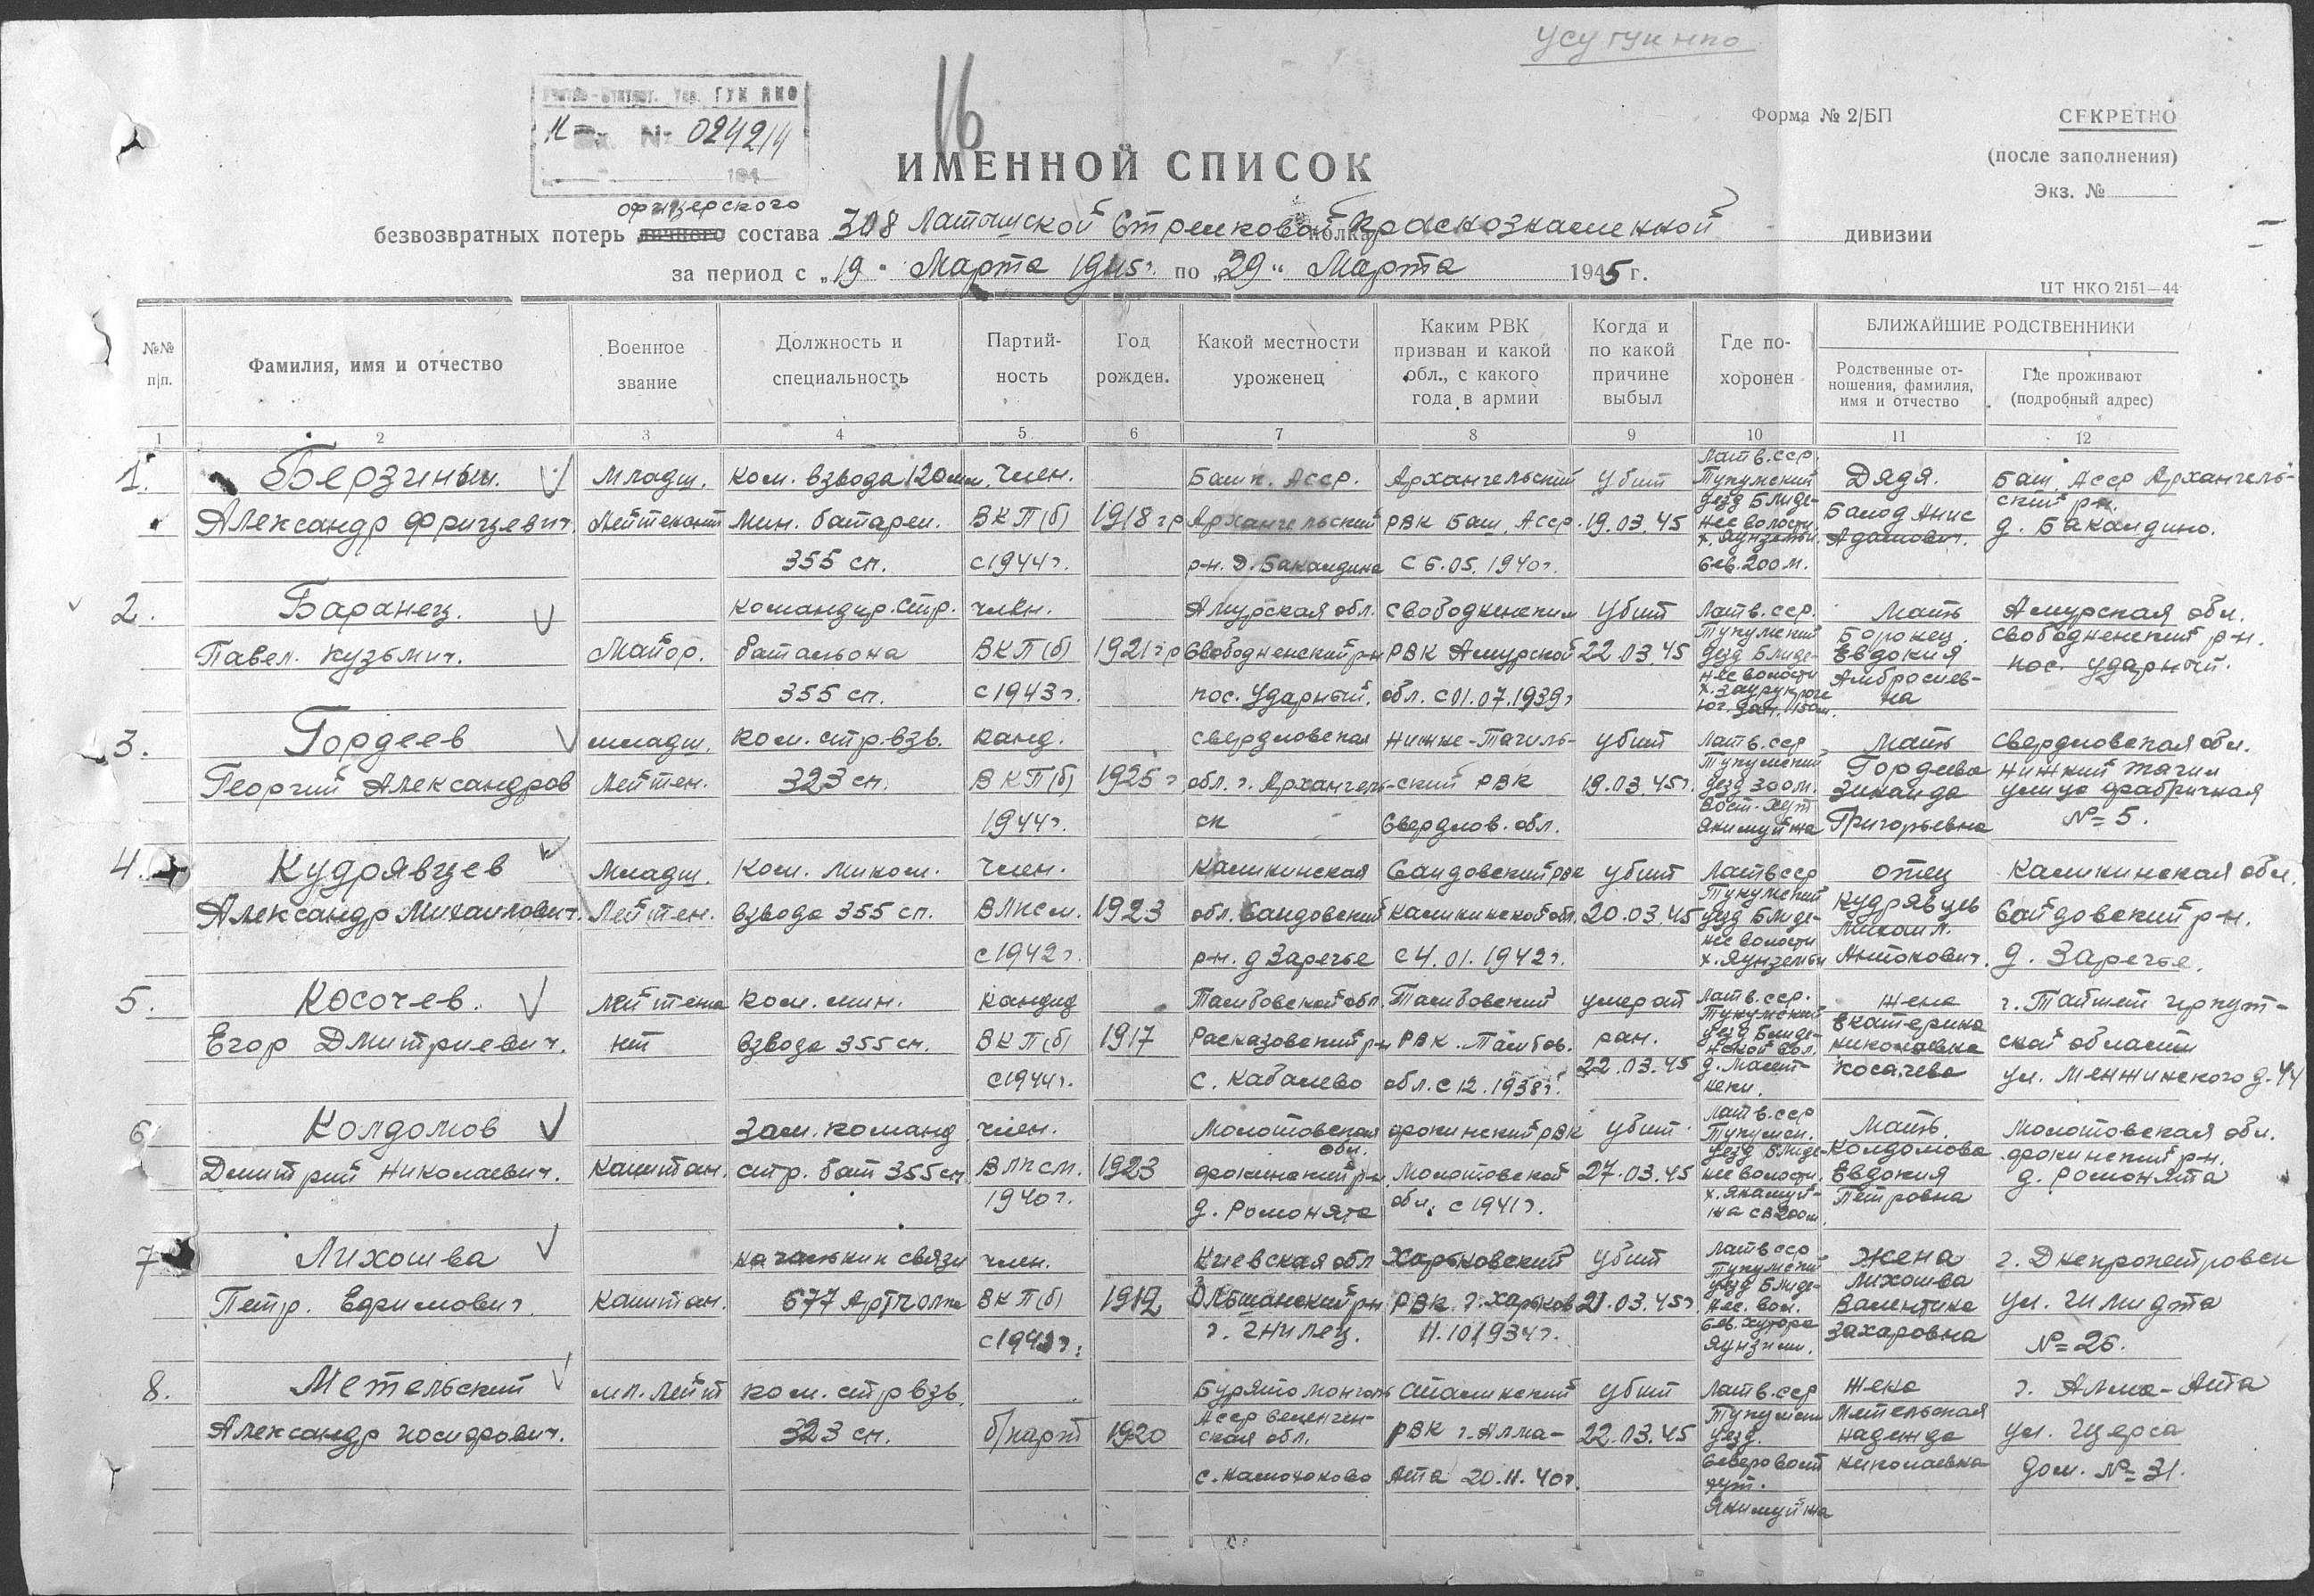 УСУ ГУК НКО
16
Учетно-статист. Упр. ГУК НКО
Вх. № 024214
194
Форма № 2/БП
СЕКРЕТНО
(после заполнения)
Экз. №
ИМЕННОЙ СПИСОК
офицерского
безвозвратных потерь личного состава 308 Латышской Стрелковой полка Краснознаменной дивизии
за период с „19" Марта 1945г. по „29" Марта 1945 г.
ЦТ НКО 2151—44
№№ п/п.
Фамилия, имя и отчество
Военное звание
Должность и специальность
Партий-
ность
Год рожден.
Какой местности уроженец
Каким РВК призван и какой обл., с какого года в армии
Когда и по какой причине выбыл
Где по-
хоронен
БЛИЖАЙШИЕ РОДСТВЕННИКИ
Родственные от-
ношения, фамилия, имя и отчество
Где проживают (подробный адрес)
1 2 3 4 5 6 7 8 9 10 11 12
1. Берзиньш. Младш. Ком. взвода 120мм. Член. Башк. Асср. Архангельский Убит Латв. сср. Дядя. Баш. Асср Архангель-
Александр Фрицевич. Лейтенант Мин. батареи. ВКП(б) 1918 гр Архангельский РВК Баш. Асср. 19.03.45 Тукумский уезд Блиде- Балод Анс ский р-н.
355 сп. с1944г. р-н. Д. Бакалдина С 6.05.1940г. нес волости х. Яунземьи. Сев. 200м. Адамович. д. Бакалдино.
2. Баранец. командир. стр. член. Амурская обл. Свободненским убит Латв. сср. Мать Амурская обл.
Павел. Кузьмич. Майор. батальона ВКП(б) 1921гр Свободненский р-н РВК Амурской 22.03.45 Тукумский уезд Блиде- Боронец. Евдокия свободненский р-н.
355 сп. с1943г. пос. Ударный. обл. с 01.07.1939г нес волости Юг. зап. 150м. Амбросиев-
на пос. Ударный.
3. Гордеев младш. ком. стр. взв. канд. свердловская Нижне-Тагиль- убит Латв. сср Мать Свердловская обл.
Георгий Александров Лейтен. 323 сп. ВКП(б) 1925г обл. г. Архангель- ский РВК 19.03.45г. Тукумский уезд 300м. Гордеева Зинаида нижний тагил улица фабричная
1944г. ск Свердлов. обл. Вост. хут Якимуйжа Григорьевна № 5.
4. Кудрявцев Младш. Ком. Мином. Член. Калининская Сандовский рвк убит Латв сср отец Калининская обл.
Александр Михаилович. Лейтен. взвода 355 сп. ВЛКСМ. 1923 обл. Сандовский Калининской обл. 20.03.45 Тукумский уезд Блиде- Кудрявцев Михаил. Сандовский р-н.
с1942г. р-н. д Заречье с 4.01.1942г. нес волости х. Яунземьи Антонович. д. Заречье.
5. Косочев. Лейтена ком. мин. кандид Тамбовской обл. Тамбовский умер от Латв. сср. Жена г. Тайшет иркут-
Егор Дмитриевич. нт взвода 355 сп. ВКП(б) 1917 Расказовский р-н РВК. Тамбов. ран. Тукумский уезд Блиде- Екатерина николаевна ской области
с1944г. с. Кабалево обл. с 12.1938г. 22.03.45 нской вол. Косачева ул. Менжинского д. 44
6 Колдомов Зам. команд член. Молотовская обл. фокинский рвк убит. Латв. сср Мать. Молотовская обл.
Дмитрий Николаевич. Капитан. стр. бат 355 сп ВЛКСМ. 1923 фокинский р-н Молотовской 27.03.45 Тукумск. уезд Блиде- Колдомова Евдокия фокинский р-н.
1940г. д. Ромонята обл. с 1941г. нес волости. х. Якамуй-
жа СВ 200м. Петровна д. Ромонята
7 Лихошва начальник связи член. Киевская обл Харьковский убит Латв сср Жена г. Днепропетровск
Петр. Ефимович. Капитан. 677 Артполка ВКП(б) 1912 Ольшанский р-н РВК г. Харьков 21.03.45г Тукумский уезд Блиде- Лихошва Валентина ул. Шмидта
г. Гнилец. 11.10.1934г. нес. вол. Сев. хутора Захаровна № 26.
8. Метельский мл. лейт ком. стр взв. Бурято монголь Алаинский убит Латв. сср Жена г. Алма-Ата
Александр иосифович. 323 сп. б/парт 1920 Асср селенген-
ская обл. РВК г. Алма- 22.03.45 Тукумск уезд. Метельская надежда
с. Камочоково Ата 20.11.40г. Северо вост хут. Якимуйжа николаевна дом. № 31.